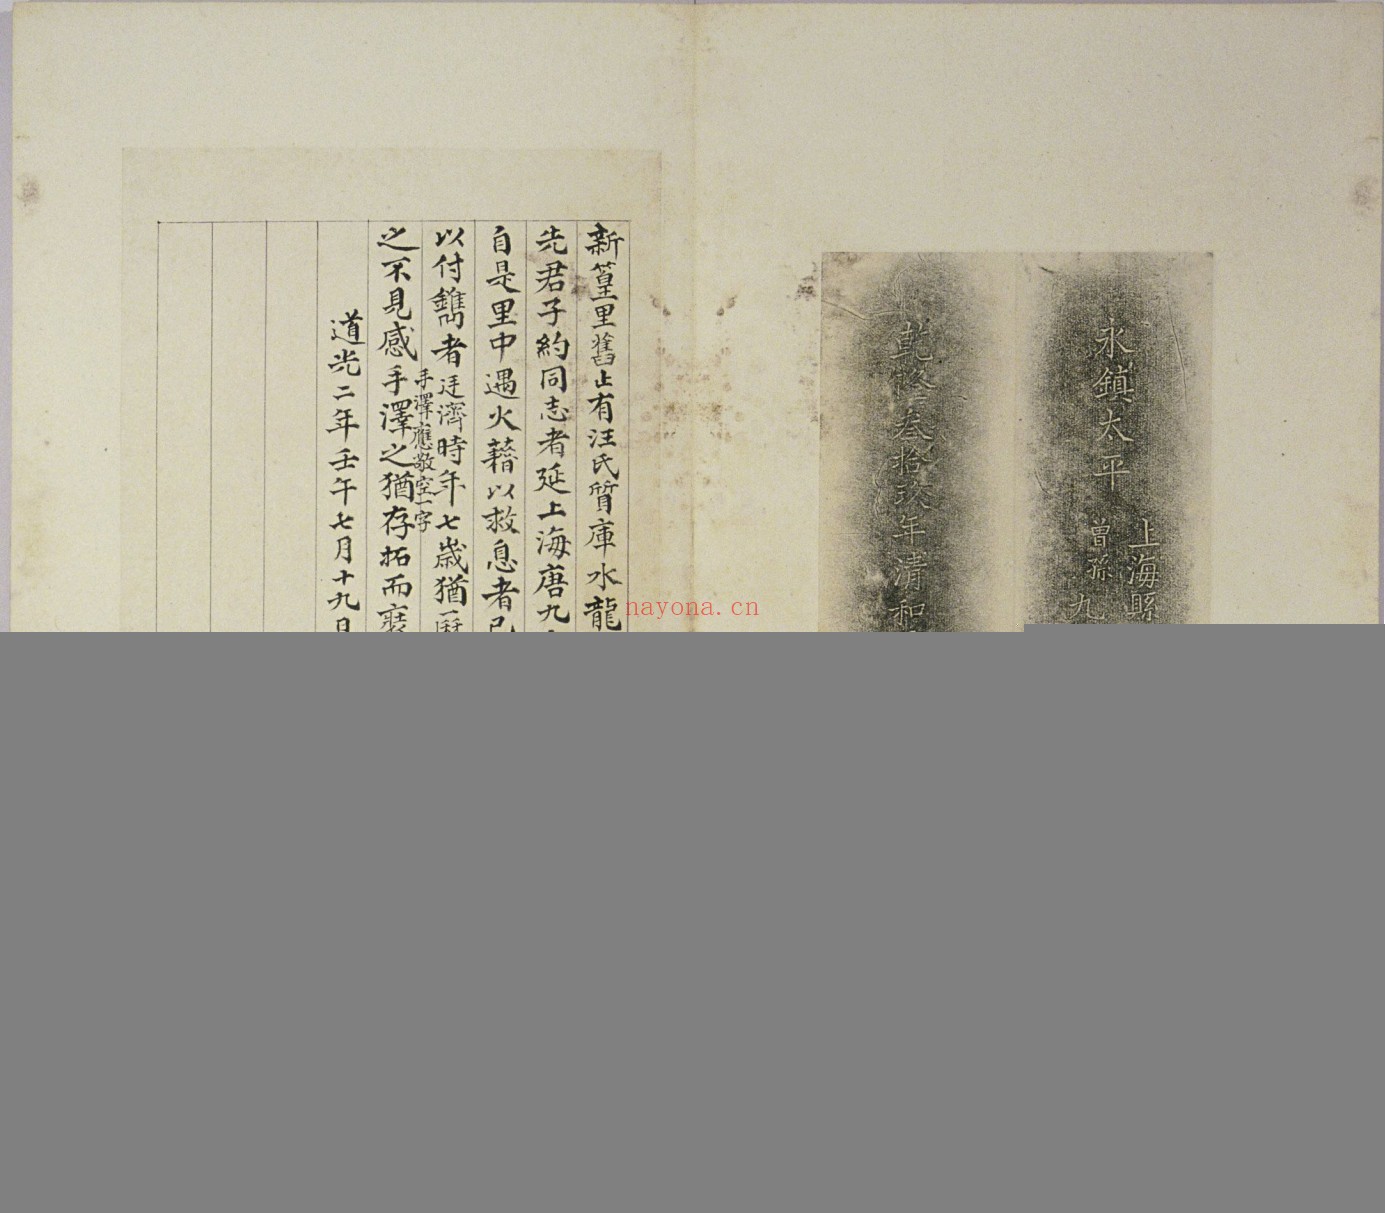 永鎮太平
上海縣
曾孫九
乾隆叁拾玖年清和
新篁里舊止有汪氏質庫水龍
先君子約同志者延上海唐九
自是里中遇火藉以救息者已
以付鐫者廷濟時年七歲猶
手澤應敬空一字
之不見感手澤之猶存拓而裝
道光二年壬午七月十九日
nayona.cn